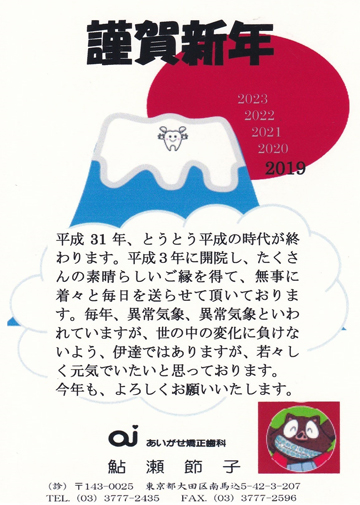 謹賀新年
2023
2022
2021
2020
2019
平成 31 年、とうとう平成の時代が終
わります。平成３年に開院し、たくさ
んの素晴らしいご縁を得て、無事に
着々と毎日を送らせて頂いておりま
す。毎年、異常気象、異常気象といわ
れていますが、世の中の変化に負けな
いよう、伊達ではありますが、若々し
く元気でいたいと思っております。
今年も、よろしくお願いいたします。
あいがせ矯正歯科
鮎瀬節子
（診）〒143-0025　東京都大田区南馬込5-42-3-207
TEL. (03) 3777-2435　FAX. (03) 3777-2596